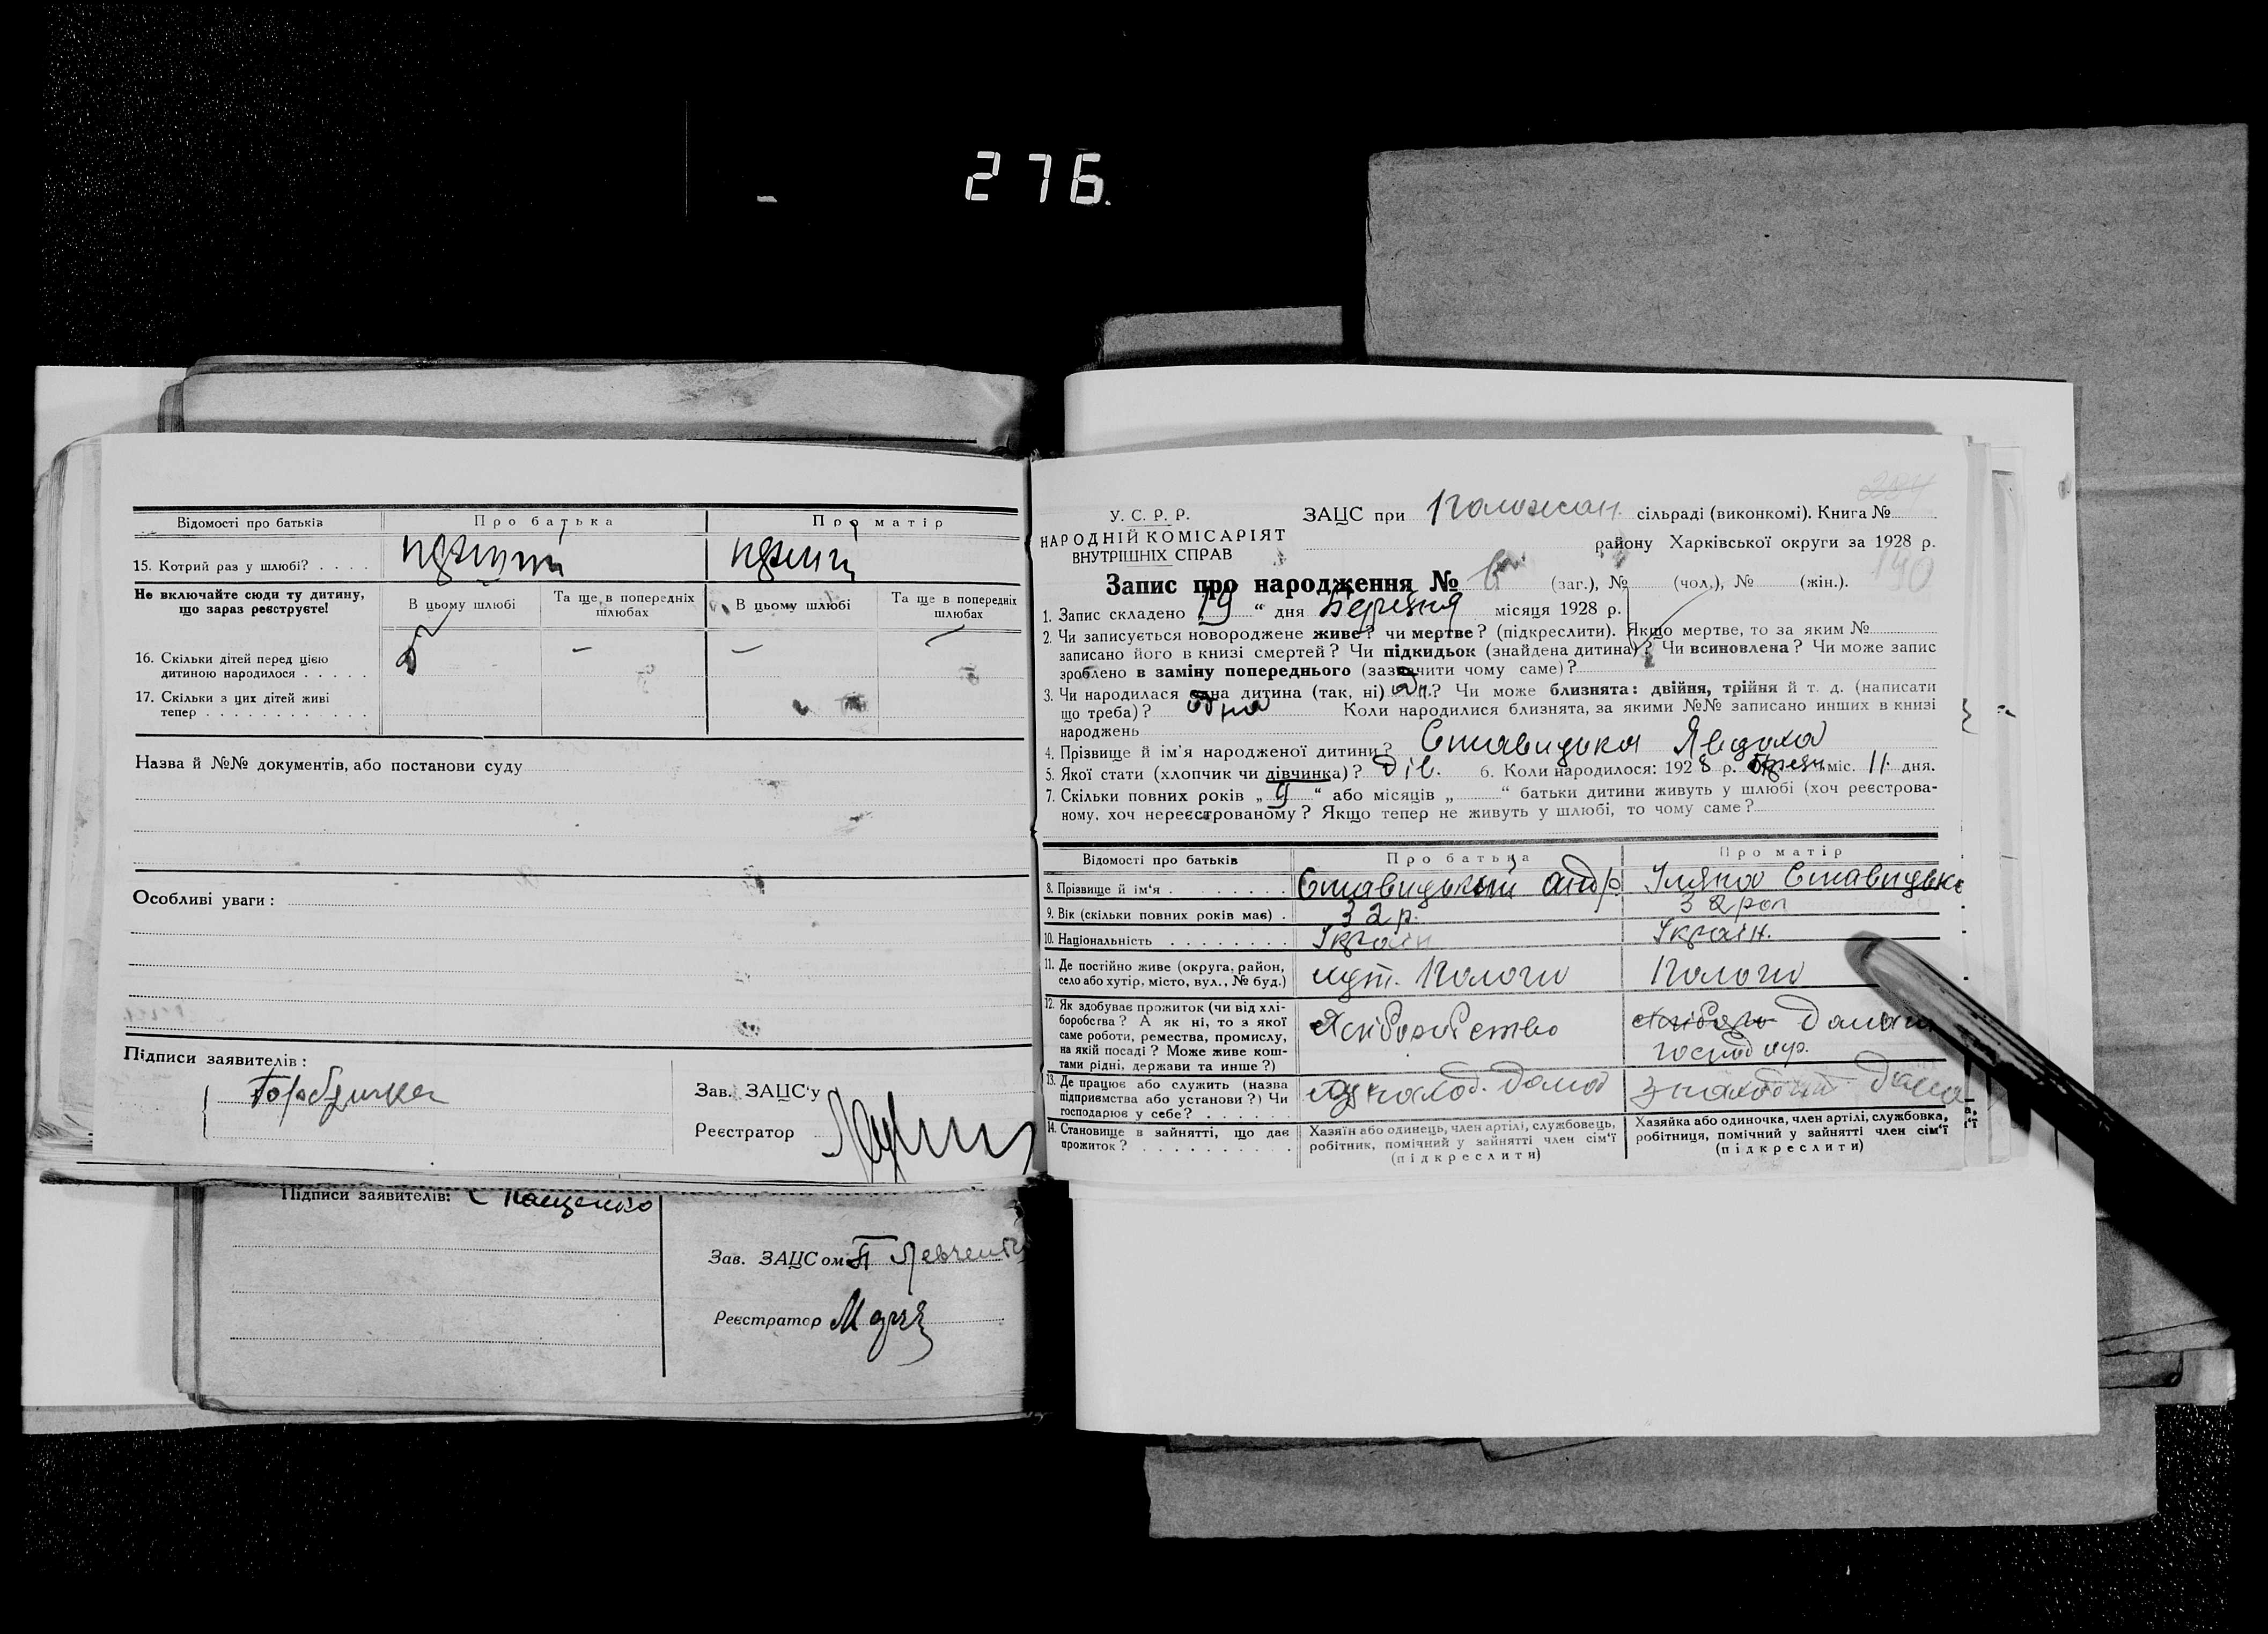 276.
Відомості про батьків
Про батька
Про матір
15. Котрий раз у шлюбі? . . . .
Не включайте сюди ту дитину,
що зараз реєструєте!
В цьому шлюбі
Та ще в попередніх
шлюбах
В цьому шлюбі
Та ще в попередніх
шлюбах
16. Скільки дітей перед цією
дитиною народилося . . . . .
–
–
–
17. Скільки з цих дітей живі
тепер . . . . . . . . . . . .
Назва й №№ документів, або постанови суду
Особливі уваги:
Підписи заявителів:
Зав. ЗАЦС'у
Реєстратор
Підписи заявителів:
Пащенко
Зав. ЗАЦСом
Реєстратор
У. С. Р. Р.
НАРОДНІЙ КОМІСАРІЯТ
ВНУТРІШНІХ СПРАВ
ЗАЦС при сільраді (виконкомі). Книга №
району Харківської округи за 1928 р.
190
Запис про народження № (заг.), № (чол.), № (жін.).
1. Запис складено „19“ дня Березня місяця 1928 р.
2. Чи записується новороджене живе? чи мертве? (підкреслити). Якщо мертве, то за яким №
записано його в книзі смертей? Чи підкидьок (знайдена дитина)? Чи всиновлена? Чи може запис
зроблено в заміну попереднього (зазначити чому саме)?
3. Чи народилася одна дитина (так, ні) ? Чи може близнята: двійня, трійня й т. д. (написати
що треба)? одна Коли народилися близнята, за якими №№ записано инших в книзі
народжень
4. Прізвище й ім'я народженої дитини? Ставицька Явдоха
5. Якої стати (хлопчик чи дівчинка)? Дів. 6. Коли народилось: 1928 р. березн міс. 11 дня.
7. Скільки повних років „ “ або місяців „ “ батьки дитини живуть у шлюбі (хоч реєстрова-
ному, хоч нереєстрованому? Якщо тепер не живуть у шлюбі, то чому саме?
Відомості про батьків
Про батька
Про матір
8. Прізвище й ім'я . . . . . . . .
Ставицький Андр.
Уляна Ставицьк
9. Вік (скільки повних років має) .
32 р.
32 рок
10. Національність . . . . . . . .
Україн
Україн.
11. Де постійно живе (округа, район,
село або хутір, місто, вул., № буд.)
хут. Пологи
Пологи
12. Як здобуває прожиток (чи від хлі-
боробства? А як ні, то з якої
саме роботи, ремества, промислу,
на якій посаді? Може живе кош-
тами рідні, держави та инше?)
Хліборобство
13. Де працює або служить (назва
підприємства або установи?) Чи
господарює у себе? . . . . .
дома
дома
14. Становище в зайнятті, що дає
прожиток? . . . . . . . . . .
Хазяїн або одинець, член артілі, службовець,
робітник, помічний у зайнятті член сім'ї
(підкреслити)
Хазяйка або одиночка, член артілі, службовка,
робітниця, помічний у зайнятті член сім'ї
(підкреслити)